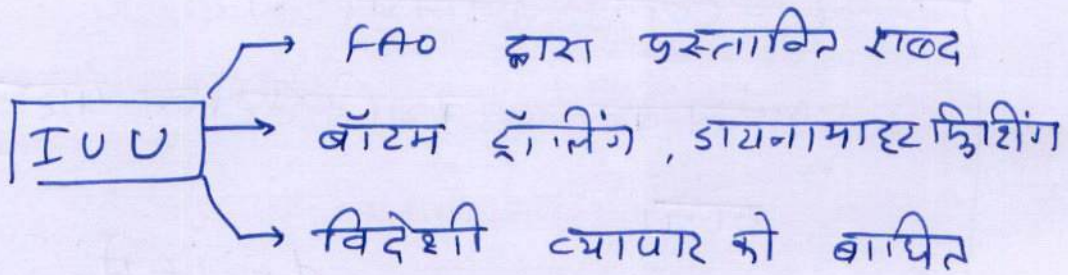 FAO द्वारा प्रस्तावित शब्द
IUU
बॉटम ट्रॉलिंग, डायनामाइट फिशिंग
विदेशी व्यापार को बाधित